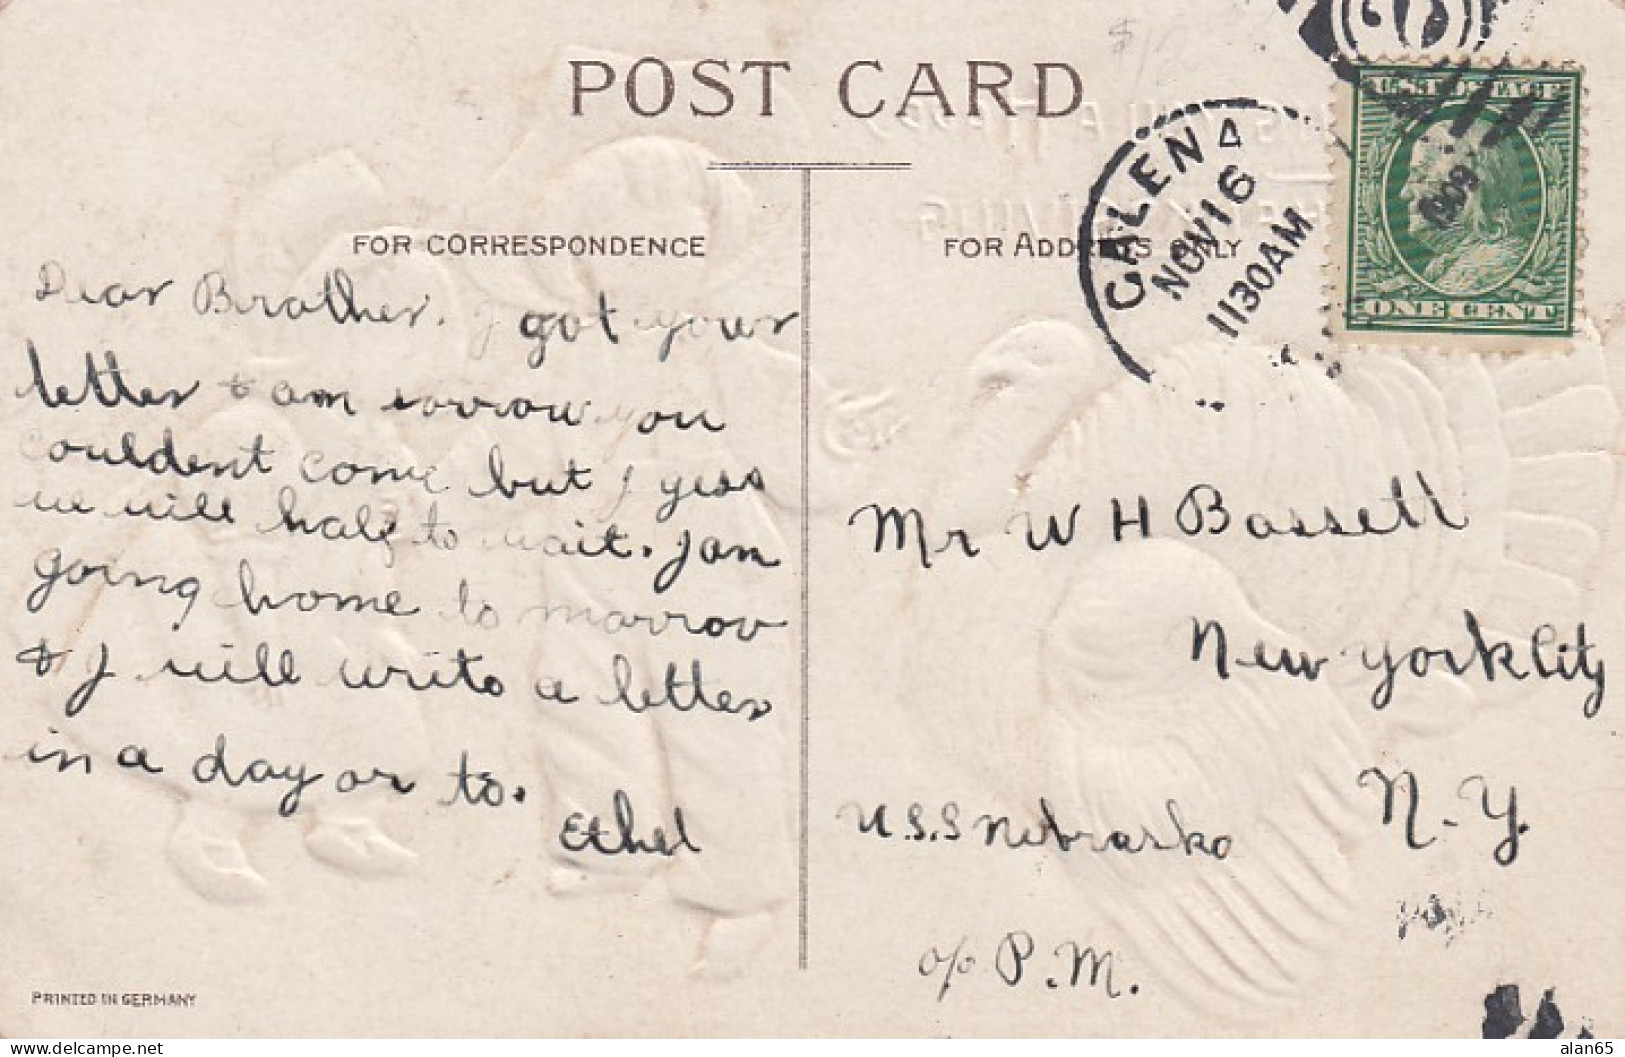 $12
POST CARD
FOR CORRESPONDENCE
FOR ADDRESS ONLY
GALENA
NOV 16
1130AM
1909
U.S. POSTAGE
ONE CENT
Dear Brother. I got your
letter & am sorrow you
couldent come but I gess
we will half to wait. I am
going home to marrow
& I will write a letter
in a day or to.
Ethel
Mr W H Bassett
New York City
N.Y.
U.S.S Nebraska
c/o P.M.
PRINTED IN GERMANY
alan65